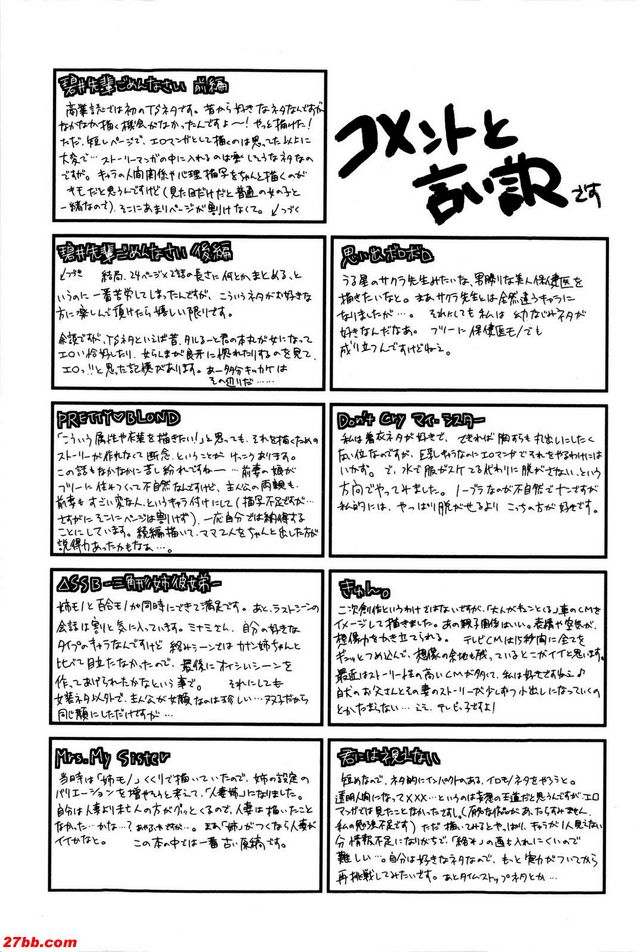 コメントと
言い訳です
碧井先輩ごめんなさい 前編
商業誌では初のTSネタです。昔から好きなネタなんですが
なかなか描く機会がなかったんですよ〜!やっと描けた!
ただ、短いページで、エロマンガとして描くのは思ってた以上に
大変で…ストーリーマンガの中に入れるのは難しそうなネタなの
ですが。キャラの人間関係や心理描写をちゃんと描くのが
キモだと思うんですけど(見た目だけだと普通の女の子と
一緒なので)、そこにあまりページが割けなくて。↙つづく
碧井先輩ごめんなさい 後編
↙つづき 結局、24ページ×2話の長さに何とかまとめる、と
いうのに一番苦労してしまったんですが、こういうネタがお好きな
方に楽しんで頂けたら嬉しい限りです。
余談ですが、TSネタといえば昔、たるるーと君の本丸が女になって
エロい恰好したり、女らしさが良に惚れたりするのを見て、
エロっ!!と思った記憶があります。あー多分キッカケ
その辺りだ……
PRETTY♥BLOND
「こういう属性や衣装を描きたい!」と思っても、それを描くための
ストーリーが作れなくて断念、ということがけっこうあります。
この話もなかなかに苦し紛れですね―…前妻の娘が
ブリーに住みつくって不自然なんですけど、主人公の両親も
前妻もすごい変な人、というキャラ付けにして(描写不足ですが…
さすがにそこにページは割けず)、一応自分では納得する
ことにしています。続編描いて、ママ2人をちゃんと出した方が
説得力あったかもなぁ…。
△SSB-三角形姉彼女弟-
姉モノと百合モノが同時にできて満足です。あと、ラストシーンの
会話は割と気に入っています。ミナミさん、自分の好きな
タイプのキャラなんですけど 絡みシーンでは カサン姉ちゃんと
比べて目立たなかったので、最後にオイシいシーンを
作ってあげられたかなという事で。 それにしても
女装ネタ以外で、主人公が女顔なのは珍しい…双子だから
同じ顔にしただけですが…
Mrs.My Sister
当時は「姉モノ」くくりで描いていたので、姉の設定の
バリエーションを増やそうと考えて、「人妻姉」になりました。
自分は人妻より未亡人の方がグッとくるので、人妻は描いたこと
なかった…かな…? まぁ「姉」がつくなら人妻が
イイかなと。 この本の中では一番古い原稿です。
思い出ボロボロ
うる星のサクラ先生みたいな、男勝りな美人保健医を
描きたいなと。まぁサクラ先生とは全然違うキャラに
なりましたが…。それにしても私は幼なじみネタが
好きなんだなぁ。ブリーに保健医モノでも
成り立つんですけどねぇ。
Don't Cry マイ・シスター
私は着衣ネタが好きで、できれば胸すらも丸出しにしたく
ない位なのですが、巨乳キャラなのにエロマンガでそれをやるわけには
いかず。で、水で服がスケてる代わりに脱がさない、という
方向でやってみました。ノーブラなのが不自然でナンですが
私的には、やっぱり脱がせるより こっちの方が好きです。
きゅん。
二次創作というわけではないですが、「大人がもっとくる」車のCMを
イメージして描きました。あの親子関係はいい。表情や空気が、
想像力をかき立てられる。テレビCMは15秒間に全てを
ギュッとつめ込んで、想像の余地も残っているところがイイと思います。
最近はストーリー性の高いCMが多くて、私は好きですねぇ♪
白犬のお父さんとその妻のストーリーが少しずつ小出しになっていくの
とかたまらない… ええ、テレビっ子ですよ!
君には視えない
短めなので、ネタ的にインパクトのある、イロモノをやろうと。
透明人間になって×××…というのは妄想の王道だと思うんですが、エロ
マンガでは見たことなかったですし。(有名な作品があったらすみません、
私の勉強不足です) ただ 描いてみると、やっぱり、キャラが1人見えない
分 情報不足になりがちで、「絡み」の画も入れにくいので
難しい…。自分は好きなネタなので、もっと実力がついてから
再挑戦してみたいです。あとタイムストップネタとか…
27bb.com